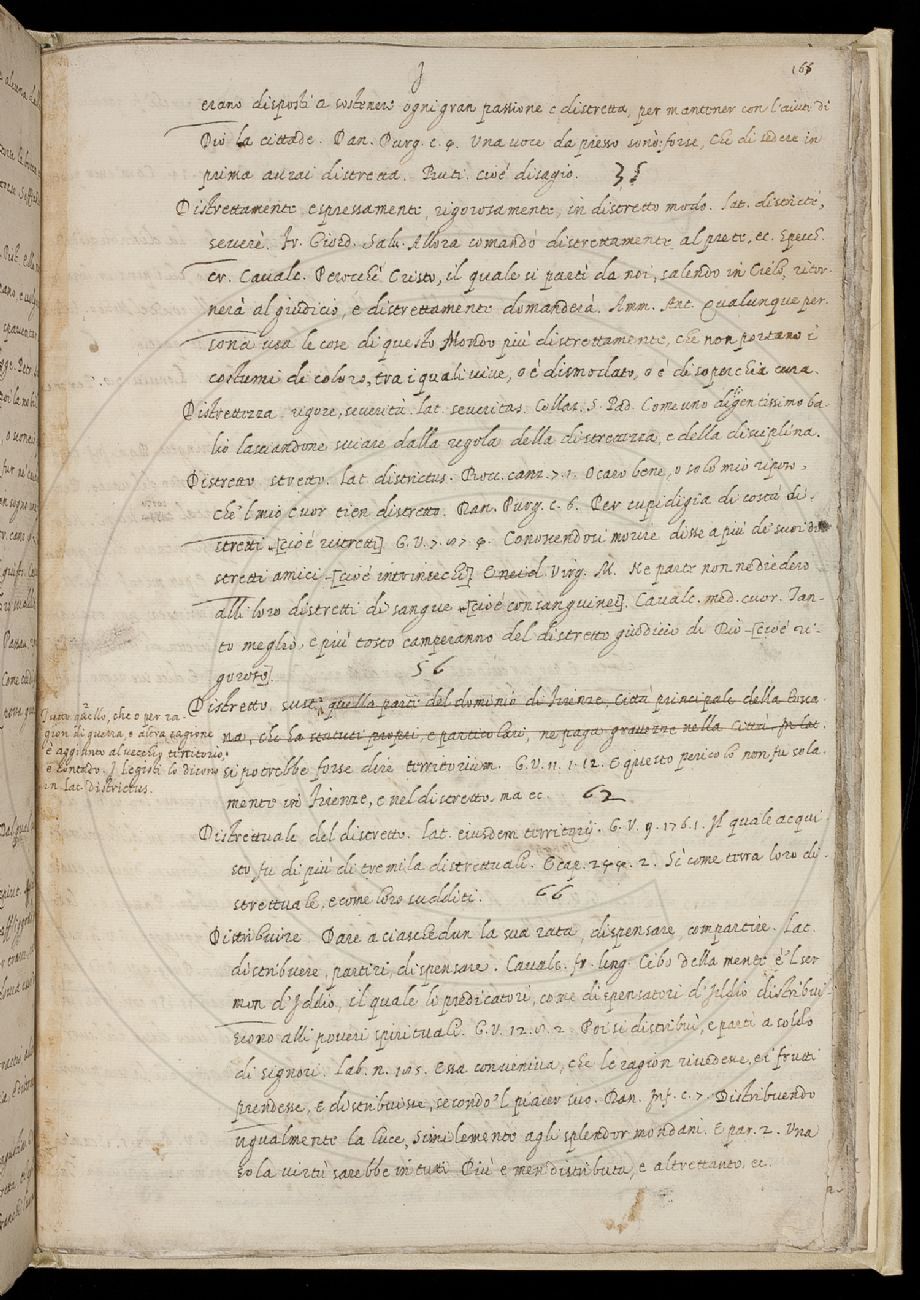 165
erano disposti a sostenere ogni gran passione e distretta, per mantener con l'aiuto di
Dio la cittade. Dan. Purg. c. 4. Una voce da presso sonò: forse, Che di sedere in
prima avrai distretta. Buti. cioè disagio. 35
Distrettamente espressamente, rigorosamente, in distretto modo. lat. districtè,
severè. Fr. Giord. Salu. Allora comandò distrettamente al prete, ec. Specch.
cr. Cavalc. Perocchè Cristo, il quale si partì da noi, salendo in Cielo, ritor-
nerà al giudicio, e distrettamente domanderà. Amm. Ant. Qualunque per-
sona usa le cose di questo Mondo più distrettamente, che non portano i
costumi di coloro, tra i quali vive, o è dismodato, o è di soperchia cura.
Distrettezza. rigore, severità. lat. severitas. Collaz. S. Pad. Come uno diligentissimo ba-
lio lasciandone sviare dalla regola della distrettezza, e della disciplina.
Distretto, stretto. lat. districtus. Bocc. canz. 7. 1. O caro bene, o solo mio riposo,
che 'l mio cuor tien distretto. Dan. Purg. c. 6. Per cupidigia di costà di-
stretti [cioè ristretti]. G. V. 7. Conoscendosi morire disse a più de suoi di-
stretti amici [cioè intrinsechi]. Virg. M. Ne parte non ne diedero
alli loro distretti di sangue [cioè consanguinei]. Cavalc. med. cuor. Tan-
to meglio, e più tosto camperanno del distretto giudicio di Dio [cioè ri-
goroso]. 56
Distretto sust. quella parte del dominio di Firenze, Città principale della Tosca
na, che ha statuti propri, e particolari, ne paga gravezze nella Città. In lat.
Tutto quello, che o per ra-
gion di guerra, o altra cagione
è aggiunto al vecchio territorio,
e contado. I legisti lo dicono
in lat. districtus.
si potrebbe forse dire territorium. G. V. 11. 1. 12. E questo pericolo non fu sola-
mente in Firenze, e nel distretto, ma ec. 62
Distrettuale del distretto. lat. eiusdem territorij. G. V. 9. 176. 1. Il quale acqui
sto fu di più di tremila distrettuali. E cap. 244. 2. Sì come terra loro di-
strettuale, e come loro sudditi. 66
Distribuire. Dare a ciaschedun la sua rata, dispensare, compartire. Lat.
distribuere, partiri, dispensare. Cavalc. fr. ling. Cibo della mente è 'l ser
mon d'Iddio, il quale li predicatori, come dispensatori d'Iddio distribui-
scono alli poveri spirituali. G. V. 12. 8. 2. Poi si distribuì, e partì a soldo
di signori. Lab. n. 185. Essa conveniva, che le ragion rivedesse, e i frutti
prendesse, e distribuisse, secondo 'l piacer suo. Dan. Inf. c. 7. Distribuendo
ugualmente la luce, Similemente agli splendor mondani. E par. 2. Una
sola virtù sarebbe in tutti Più e men distributa, e altrettanto, ec.